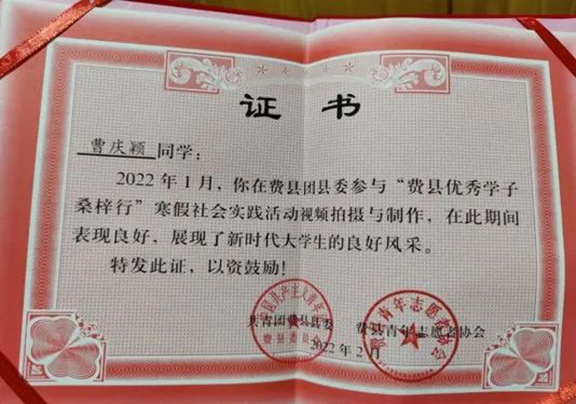 证书
曹庆颖同学：
2022年1月，你在费县团县委参与“费县优秀学子
桑梓行”寒假社会实践活动视频拍摄与制作，在此期间
表现良好，展现了新时代大学生的良好风采。
特发此证，以资鼓励！
共青团费县县委 费县青年志愿者协会
2022年2月